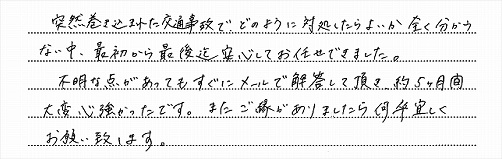 突然巻き込まれた交通事故で、どのように対処したらよいか全く分から
ない中、最初から最後迄安心してお任せできました。
不明な点があってもすぐにメールで解答して頂き、約5ヶ月間
大変心強かったです。またご縁がありましたら何卒宜しく
お願い致します。